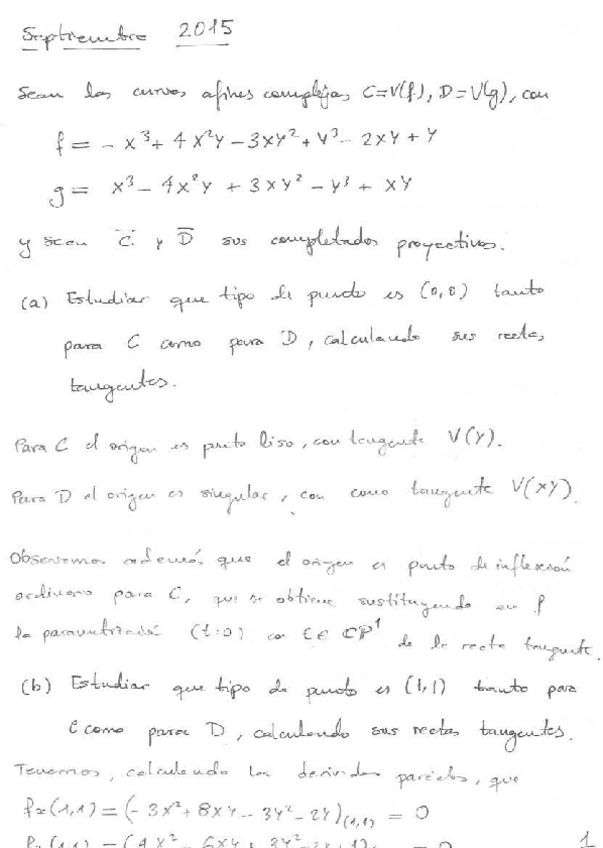 Septiembre 2015
Sean las curvas afines complejas C=V(f), D=V(g), con
f = - x³ + 4x²y - 3xy² + y³ - 2xy + y
g = x³ - 4x²y + 3xy² - y³ + xy
y sean C̄ y D̄ sus completados proyectivos.
(a) Estudiar que tipo de punto es (0,0) tanto
para C como para D, calculando sus rectas
tangentes.
Para C el origen es punto liso, con tangente V(y).
Para D el origen es singular, con cono tangente V(xy).
Observemos además que el origen es punto de inflexión
ordinario para C, que se obtiene sustituyendo en f
la parametrización (t:0) con t∈ ℂP¹ de la recta tangente.
(b) Estudiar que tipo de punto es (1,1) tanto para
C como para D, calculando sus rectas tangentes.
Tenemos, calculando las derivadas parciales, que
fx(1,1) = (-3x² + 8xy - 3y² - 2y)(1,1) = 0
1